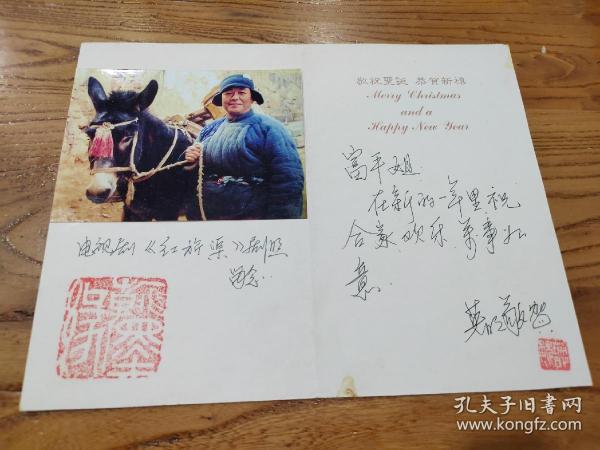 电视剧《红旗渠》剧照
留念
敬祝聖誕 恭賀新禧
Merry Christmas
and a
Happy New Year
富平姐
在新的一年里祝
合家欢乐 万事如
意
英明敬贺
孔夫子旧书网
www.kongfz.com